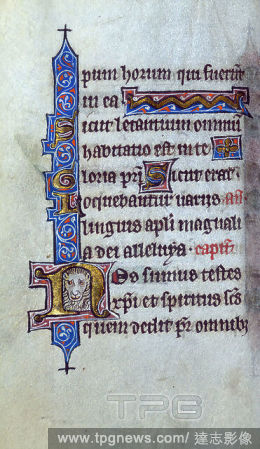 pium horum qui fuerūt
in ea
Sicut letantium omniū
habitatio est in te
Gloria pr̄i Sicut erat
Loquebantur uariis a͞n
linguis apl̄i magnali
a dei alleluya capitl̄
Nos sumus testes
xp̄i et spiritus sc̄s
quem dedit pr̄ omnibȝ
TPG
www.tpgnews.com/達志影像